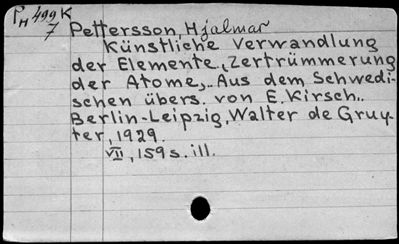 PH 499 K
7
Pettersson, Hjalmar
Künstliche Verwandlung
der Elemente, Zertrümmerung
der Atome,.. Aus dem Schwedi-
schen übers. von E. Kirsch..
Berlin-Leipzig, Walter de Gruy-
ter, 1929.
VII, 159 s. ill.